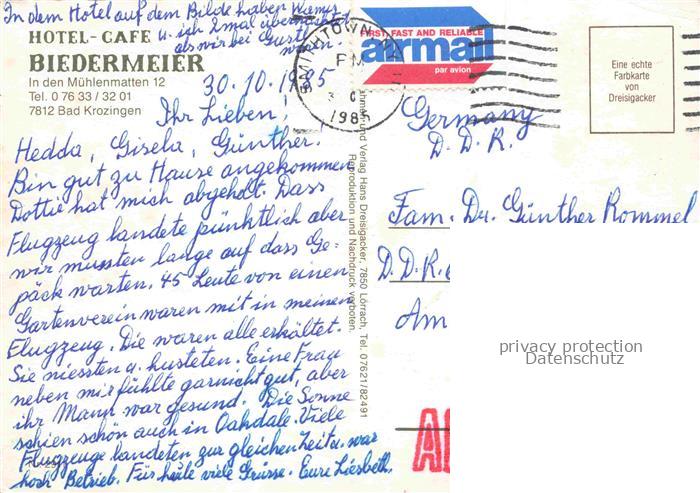 In dem Hotel auf dem Bilde haben Mamy
u. ich 2 mal übernachtet
als wir bei Gustl
waren.
HOTEL-CAFE
BIEDERMEIER
In den Mühlenmatten 12
Tel. 0 76 33 / 32 01
7812 Bad Krozingen
30.10.1985
Ihr Lieben!
Hedda, Gisela, Günther!
Bin gut zu Hause angekommen
Dottie hat mich abgeholt. Dass
Flugzeug landete pünktlich aber
wir mussten lange auf dass Ge-
päck warten. 45 Leute von einen
Gartenverein waren mit in meinem
Flugzeug. Die waren alle erkältet.
Sie niessten u. husteten. Eine Frau
neben mir fühlte garnicht gut, aber
ihr Mann war gesund. Die Sonne
schien schön auch in Oakdale. Viele
Flugzeuge landeten zur gleichen Zeit u. war
hoch Betrieb. Für heute viele Grüsse. Eure Liesbeth.
Verlag Hans Dreisigacker, 7850 Lörrach, Tel. 07621/82491
Reproduktion und Nachdruck verboten.
SMITHTOWN
PM
1985
FIRST FAST AND RELIABLE
airmail
par avion
Eine echte
Farbkarte
von
Dreisigacker
Germany
D. D. R.
Fam. Dr. Günther Rommel
D.D.R.
Am
privacy protection
Datenschutz